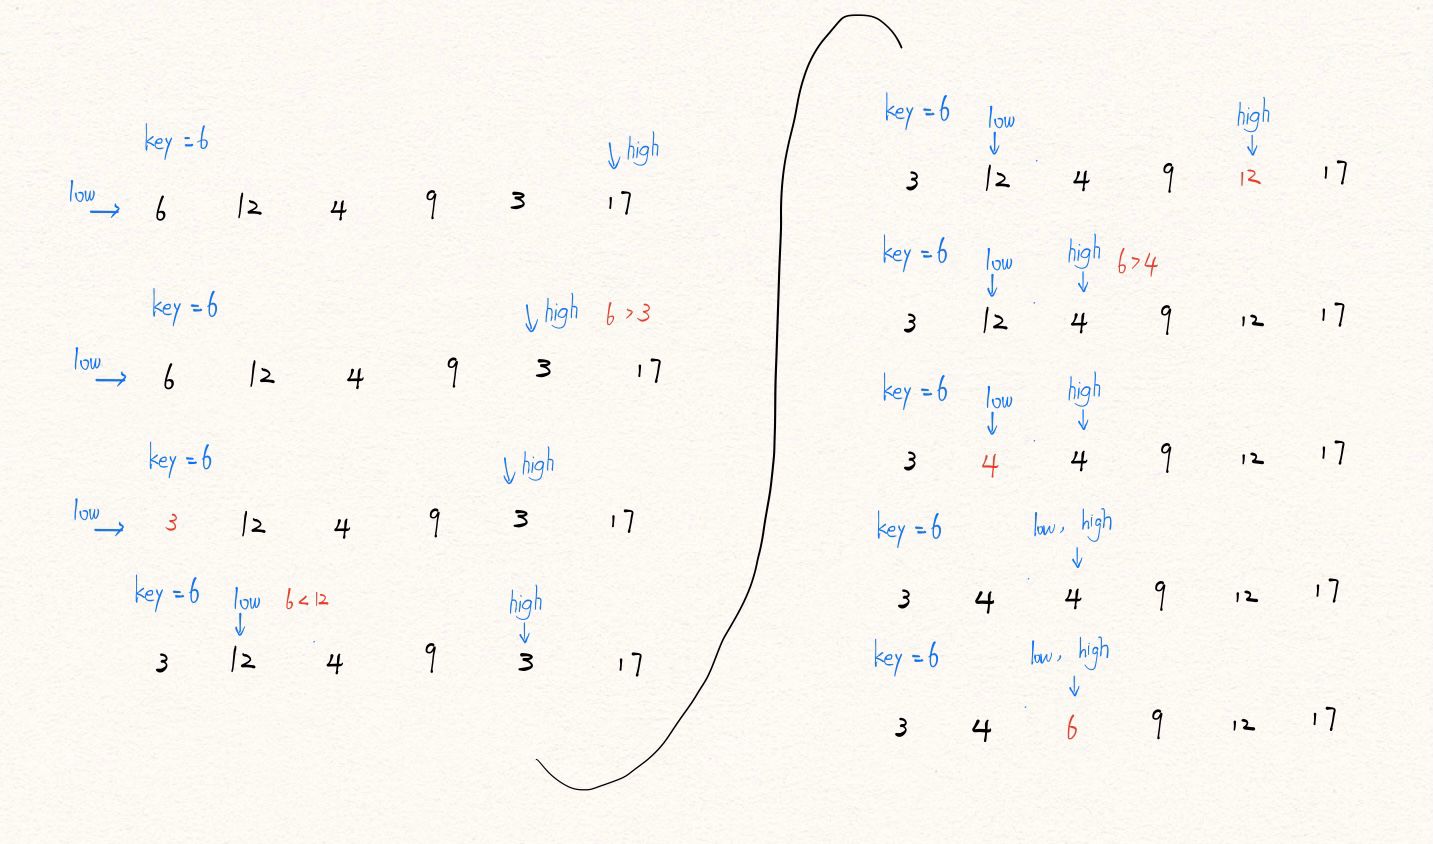 key = 6
↓ high
low → 6 12 4 9 3 17
key = 6 ↓ high 6 > 3
low → 6 12 4 9 3 17
key = 6 ↓ high
low → 3 12 4 9 3 17
key = 6 low 6 < 12 high
↓ ↓
3 12 4 9 3 17
key = 6 low high
↓ ↓
3 12 4 9 12 17
key = 6 low high 6 > 4
↓ ↓
3 12 4 9 12 17
key = 6 low high
↓ ↓
3 4 4 9 12 17
key = 6 low, high
↓
3 4 4 9 12 17
key = 6 low, high
↓
3 4 6 9 12 17